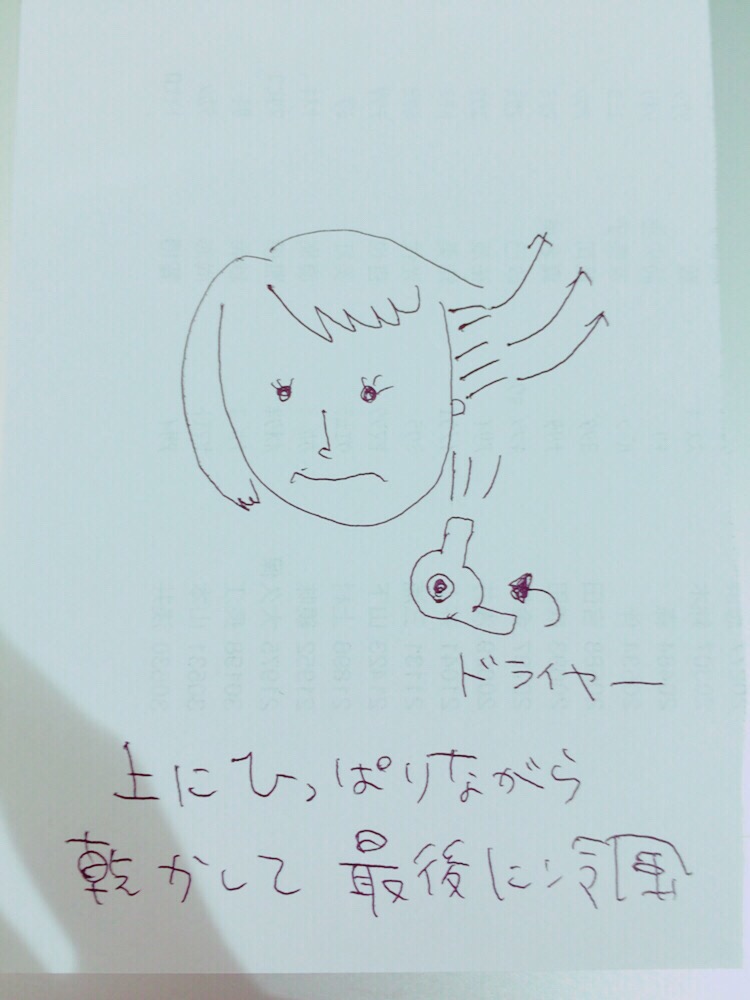 ドライヤー
上にひっぱりながら
乾かして 最後に冷風